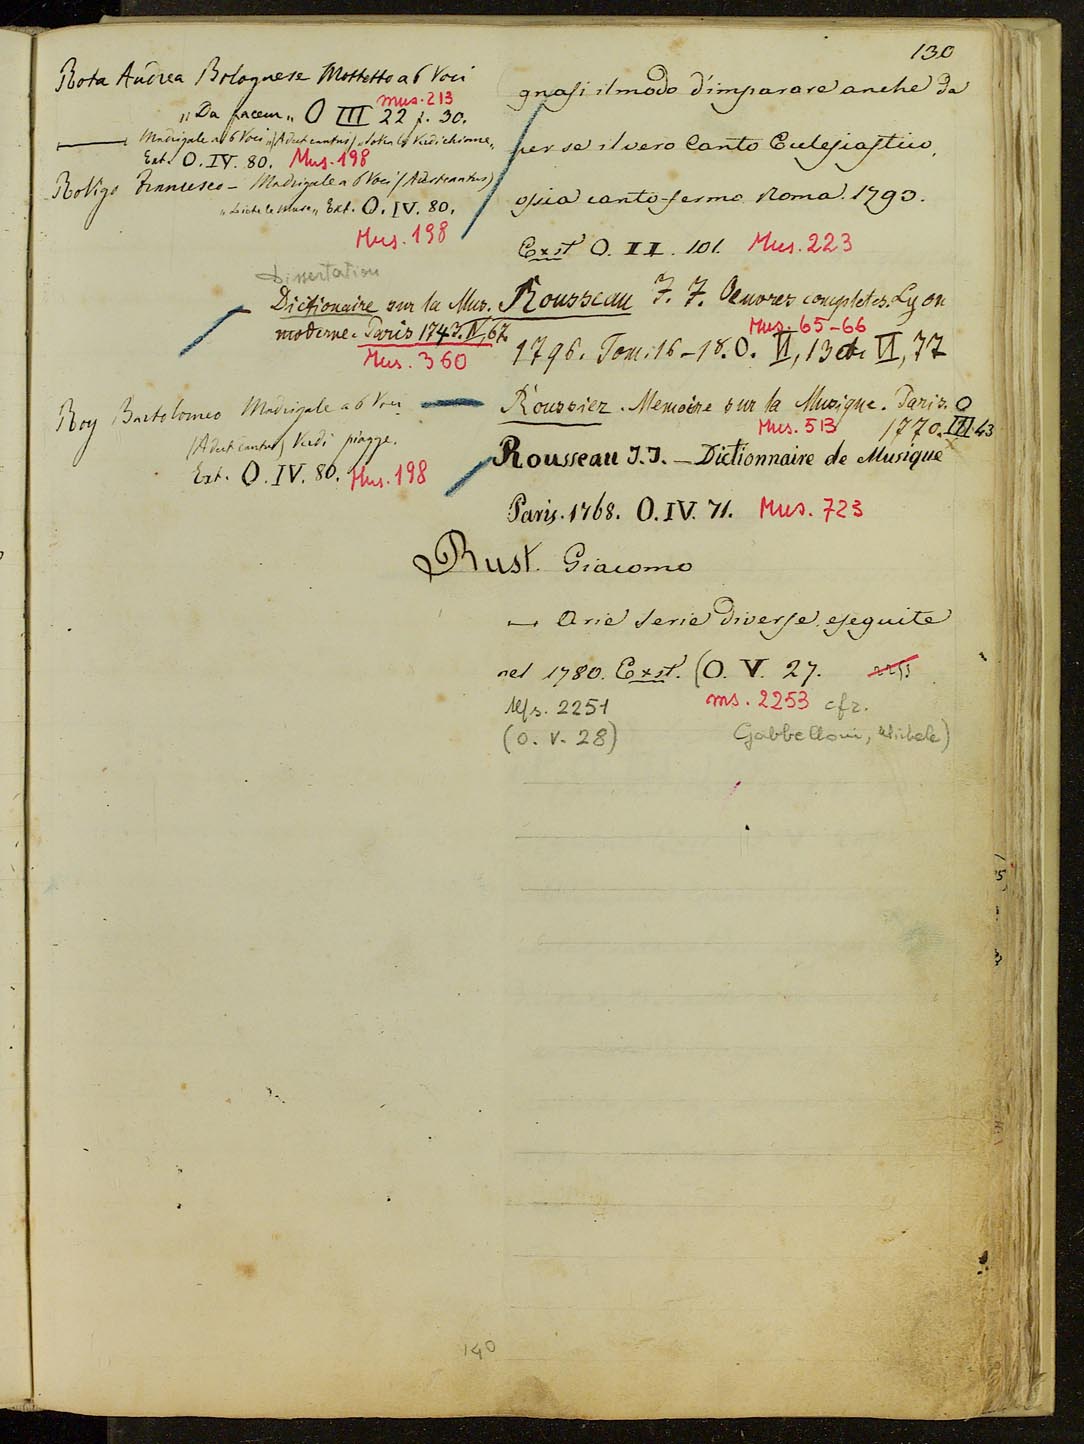 130
Rota Andrea Bolognese Mottetto a 6 Voci
mus. 213
„Da pacem„ O III 22 f. 30.
— Madrigale a 6 Voci
Ext. O. IV. 80. Mus. 198
Rovigo Francesco – Madrigale a 6 Voci
Ext. O. IV. 80.
Mus. 198
Dissertation
Dictionaire sur la Mus.
moderne. Paris 1743. IV, 67.
Mus. 360
Roy Bartolomeo Madrigale a 6 Voci
Vedi piagge.
Ext. O. IV. 80. Mus. 198
gnasi il modo d'imparare anche da
per se il vero Canto Eclesiastico,
ossia canto-fermo Roma. 1793.
Exst O. II. 101. Mus. 223
Rousseau J. J. Oeuvres completes. Lyon
Mus. 65-66
1796. Tom. 16-18. O. VI, 13 VI, 77
Roussier. Memoire sur la Musique. Paris. O
Mus. 513 1770. III 43
Rousseau J.J. – Dictionnaire de Musique
Paris. 1768. O. IV. 71. Mus. 723
Rust. Giacomo
— Arie Serie diverse eseguite
nel 1780. Exst. (O. V. 27.
Ms. 2251 ms. 2253 cfr.
(O. V. 28) Gabbelloni, Michele)
140